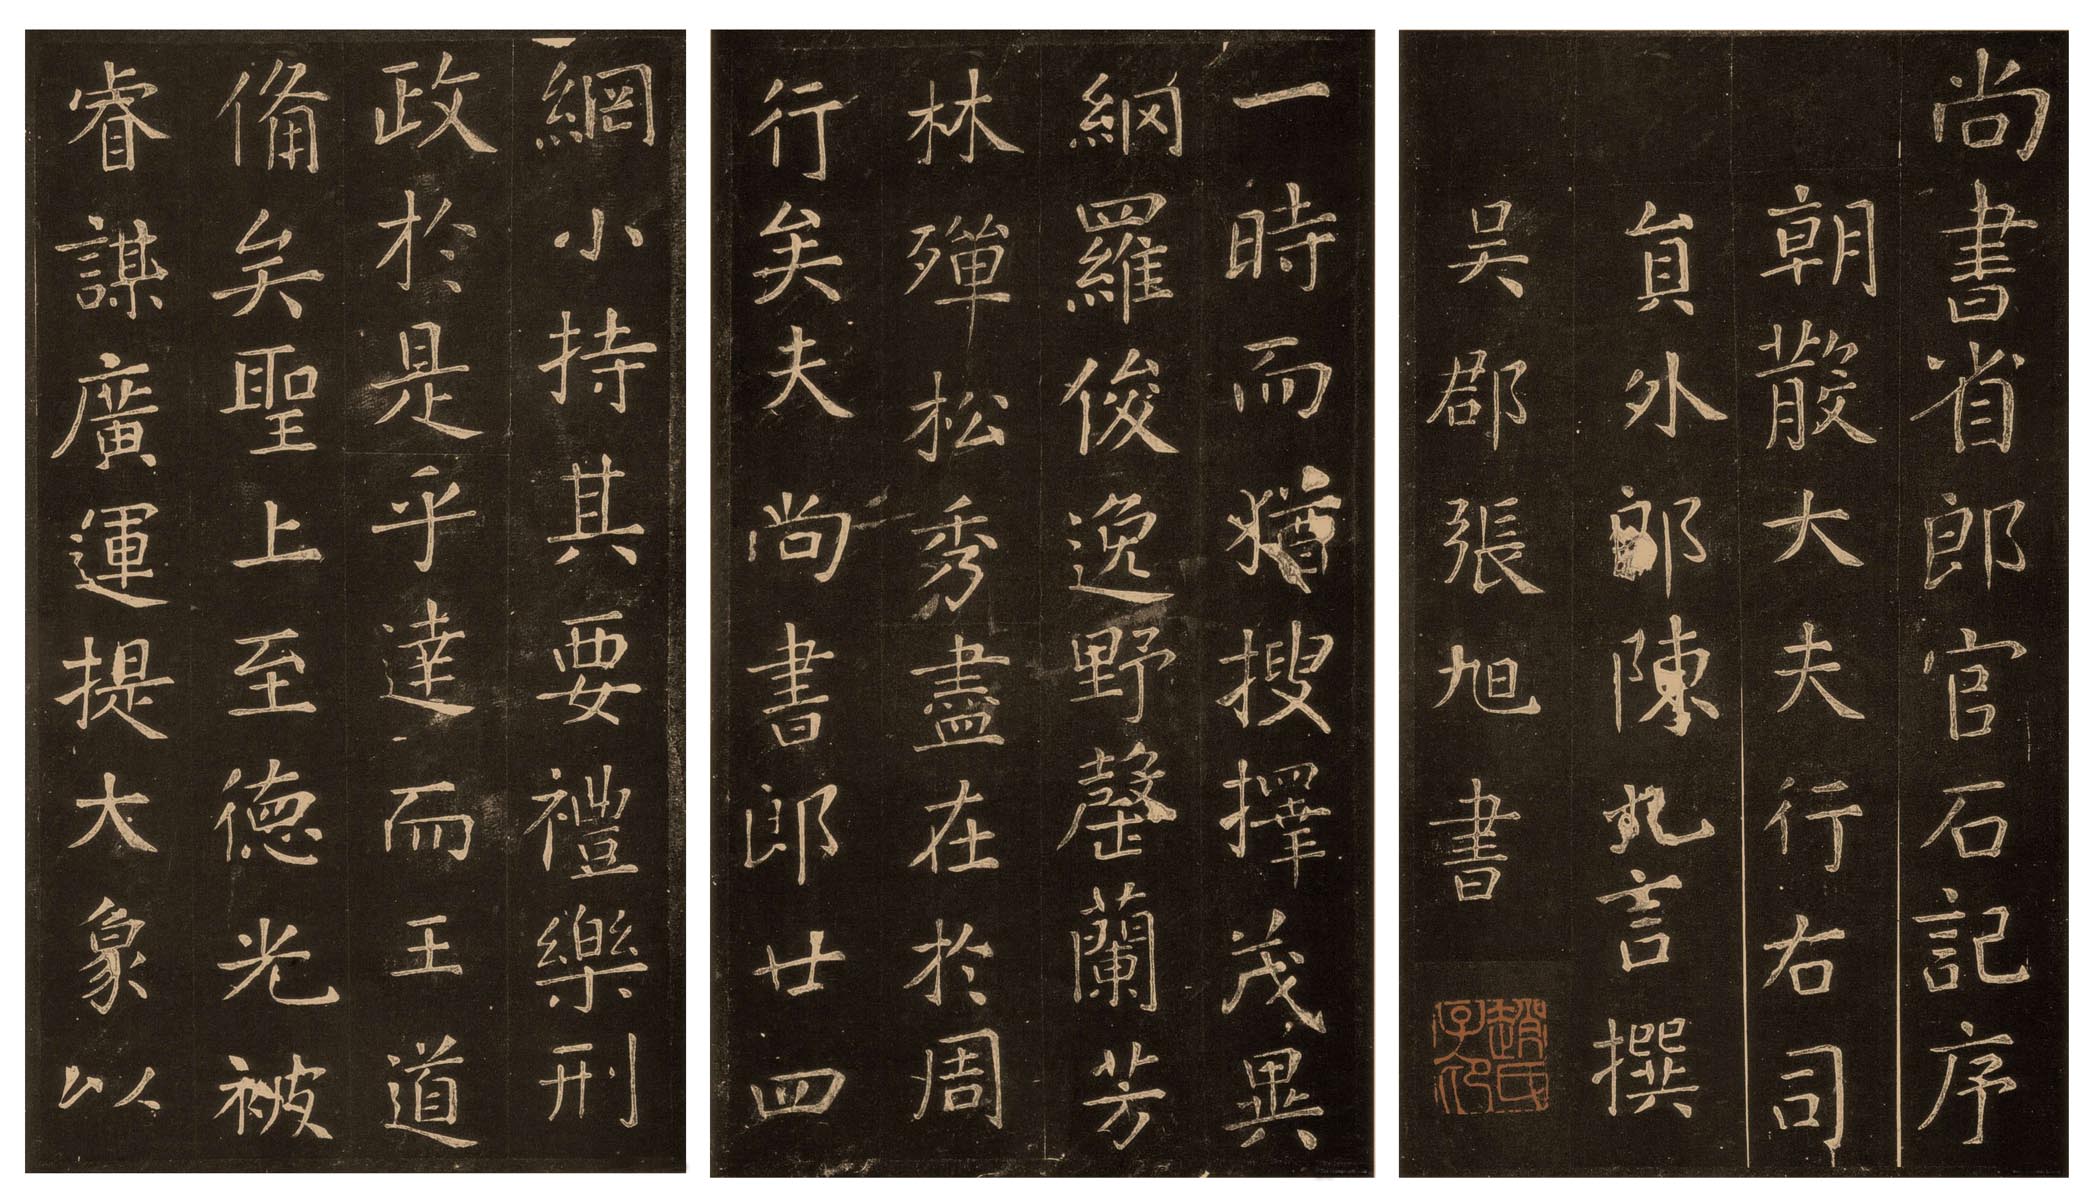 尚書省郎官石記序
朝散大夫行右司
員外郎陳九言撰
吳郡張旭書
一時而猶搜擇茂異
網羅俊逸野罄蘭芳
林殫松秀盡在於周
行矣夫尚書郎廿四
綱小持其要禮樂刑
政於是乎達而王道
俻矣聖上至德光被
睿謀廣運提大象以